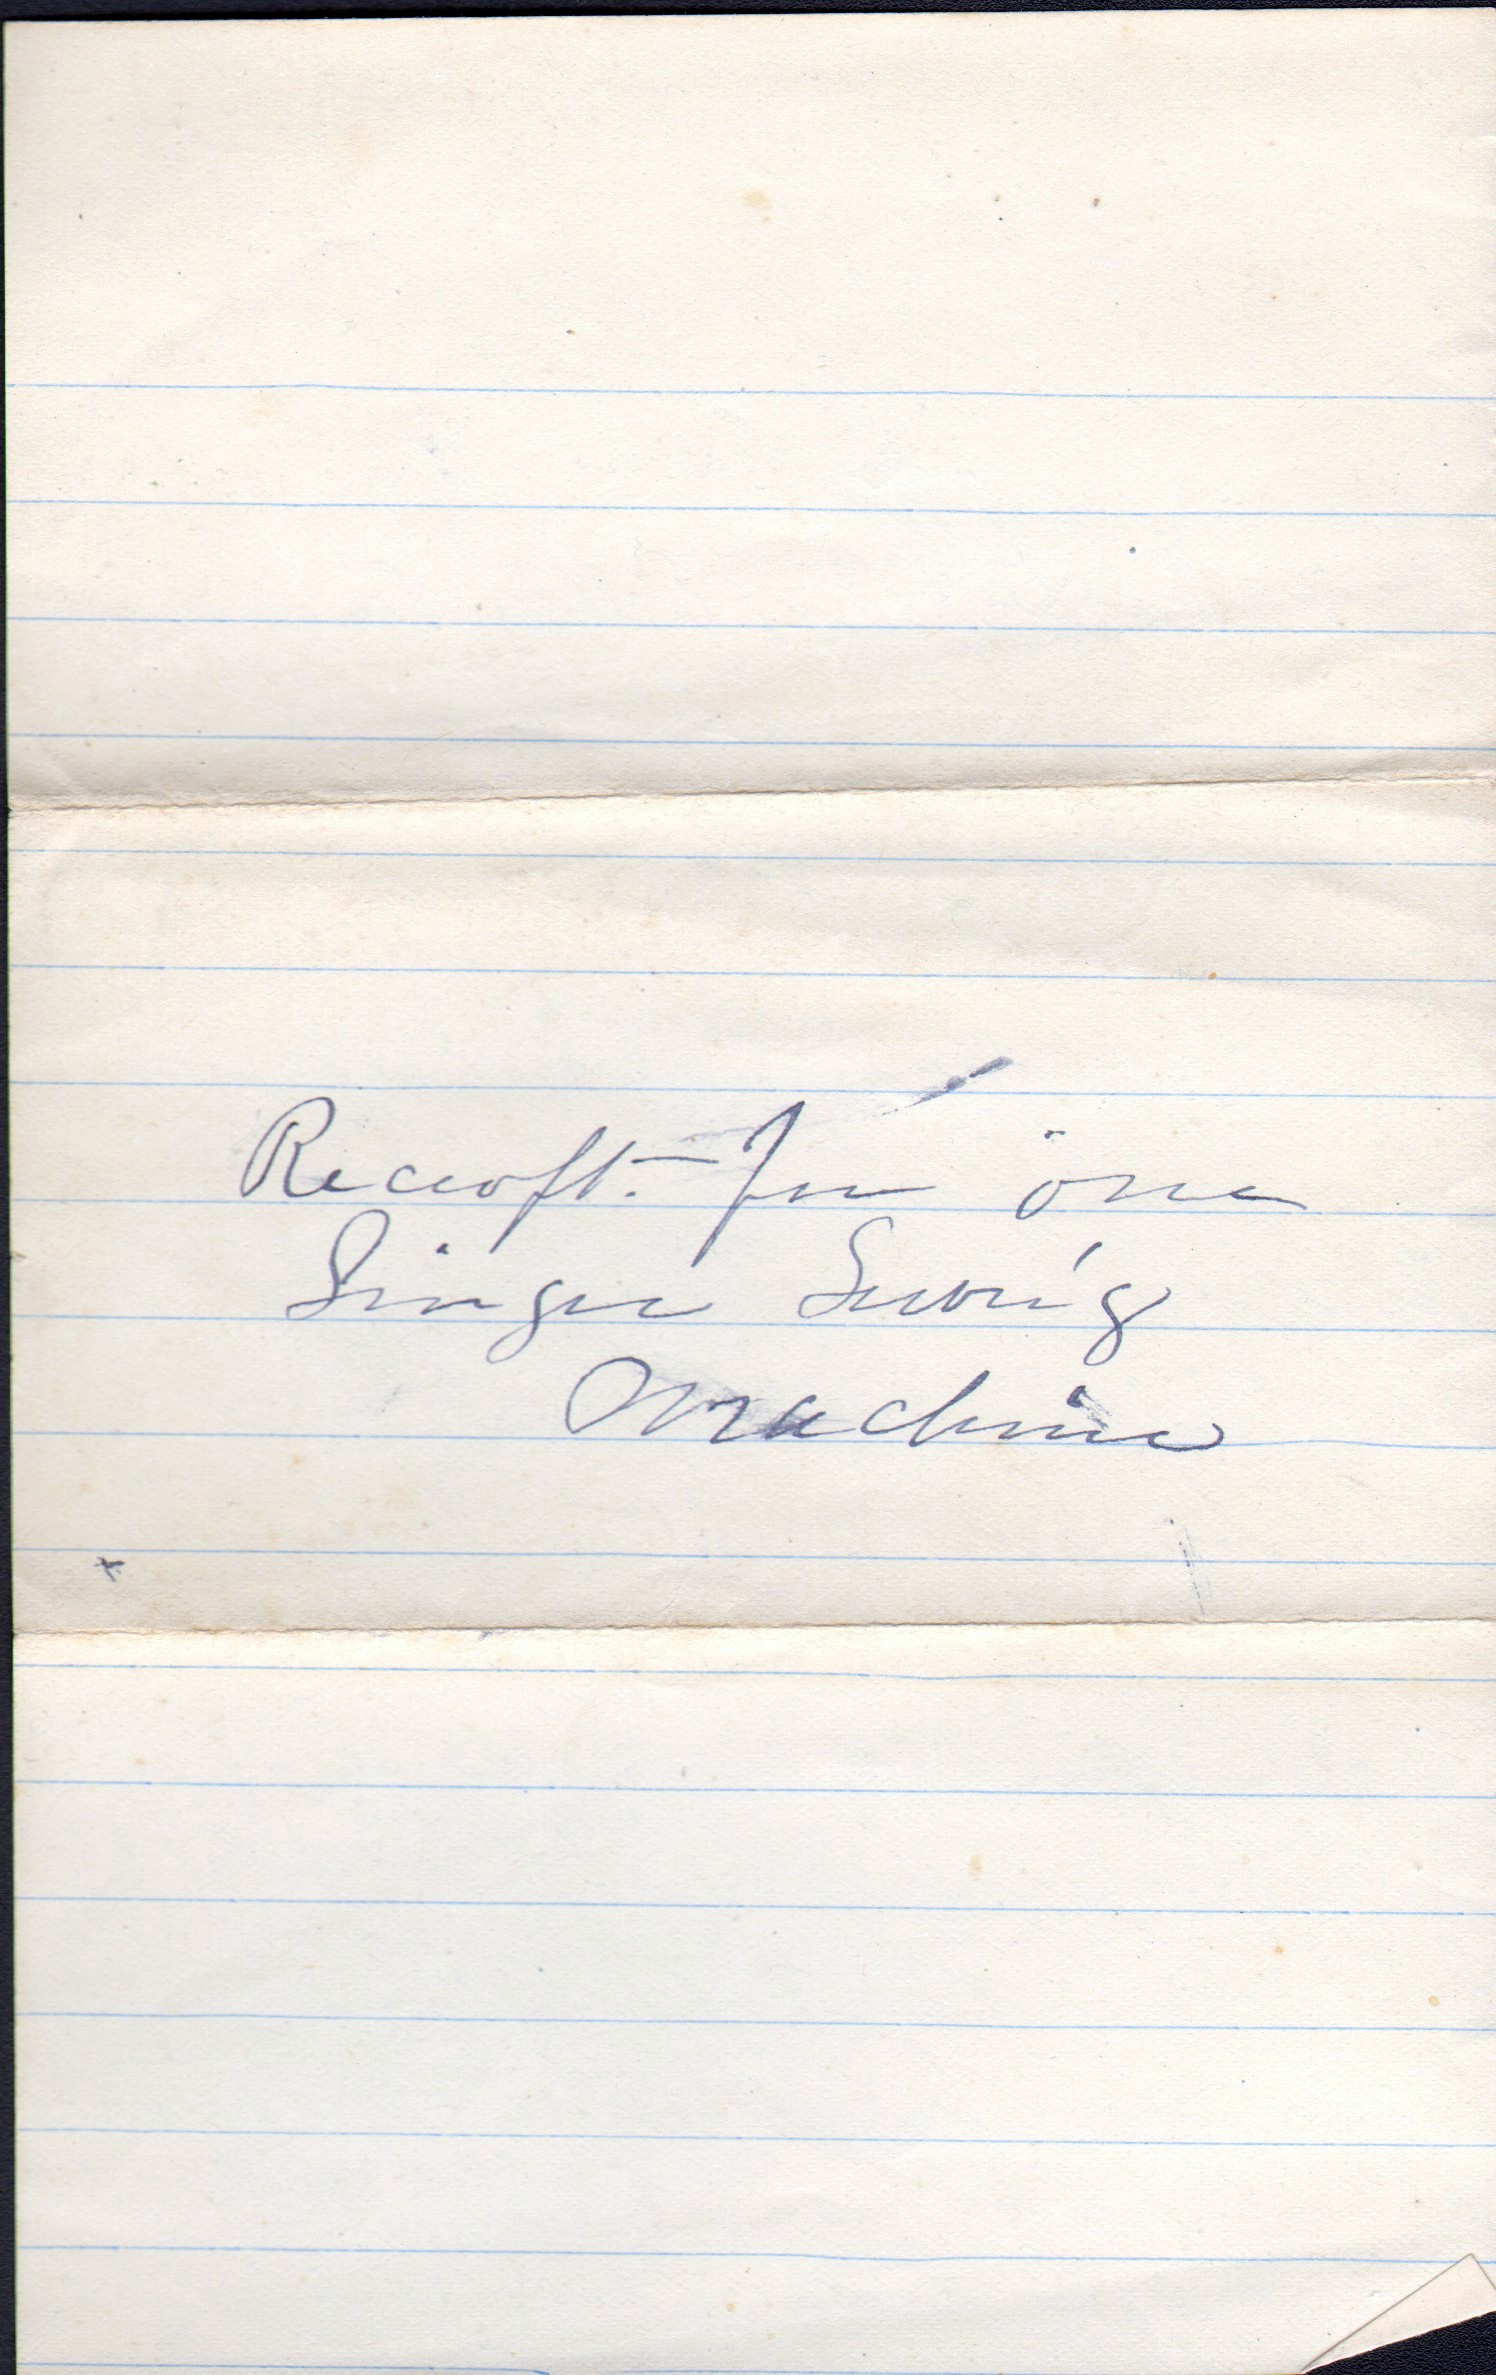 Receipt. For one
Singer Sewing
Machine